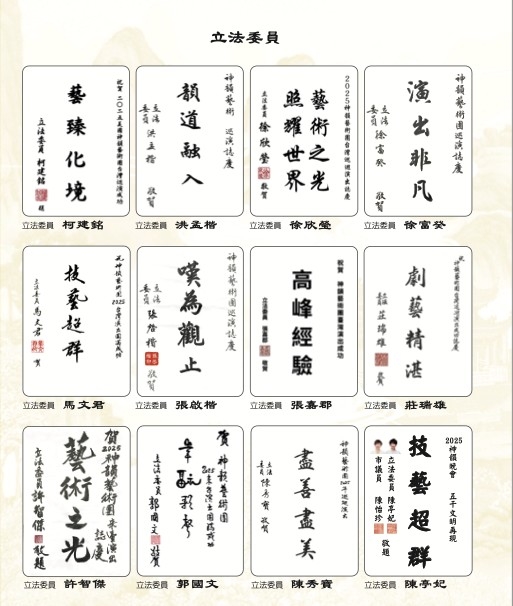 立法委員
祝賀 二〇二五美國神韻藝術團台灣巡演成功
藝臻化境
立法委員 柯建銘
立法委員 柯建銘
神韻藝術 巡演誌慶
韻道融入
立法委員 洪孟楷 敬賀
立法委員 洪孟楷
2025神韻藝術團台灣巡迴演出誌慶
藝術之光
照耀世界
立法委員 徐欣瑩 敬賀
立法委員 徐欣瑩
神韻藝術團巡演誌慶
演出非凡
立法委員 徐富癸 敬賀
立法委員 徐富癸
技藝超群
立法委員 馬文君 賀
立法委員 馬文君
神韻藝術團巡演誌慶
嘆為觀止
立法委員 張啟楷 敬賀
立法委員 張啟楷
祝賀 神韻藝術團臺灣演出成功
高峰經驗
立法委員 張嘉郡 敬賀
立法委員 張嘉郡
劇藝精湛
莊瑞雄
立法委員 莊瑞雄
賀2025神韻藝術團來臺演出誌慶
藝術之光
立法委員 許智傑 敬題
立法委員 許智傑
賀 神韻藝術團
立法委員 郭國文 敬賀
立法委員 郭國文
盡善盡美
立法委員 陳秀寳 敬賀
立法委員 陳秀寳
2025 神韻晚會 五千文明再現
技藝超群
立法委員 陳亭妃
市議員 陳怡珍 敬題
立法委員 陳亭妃